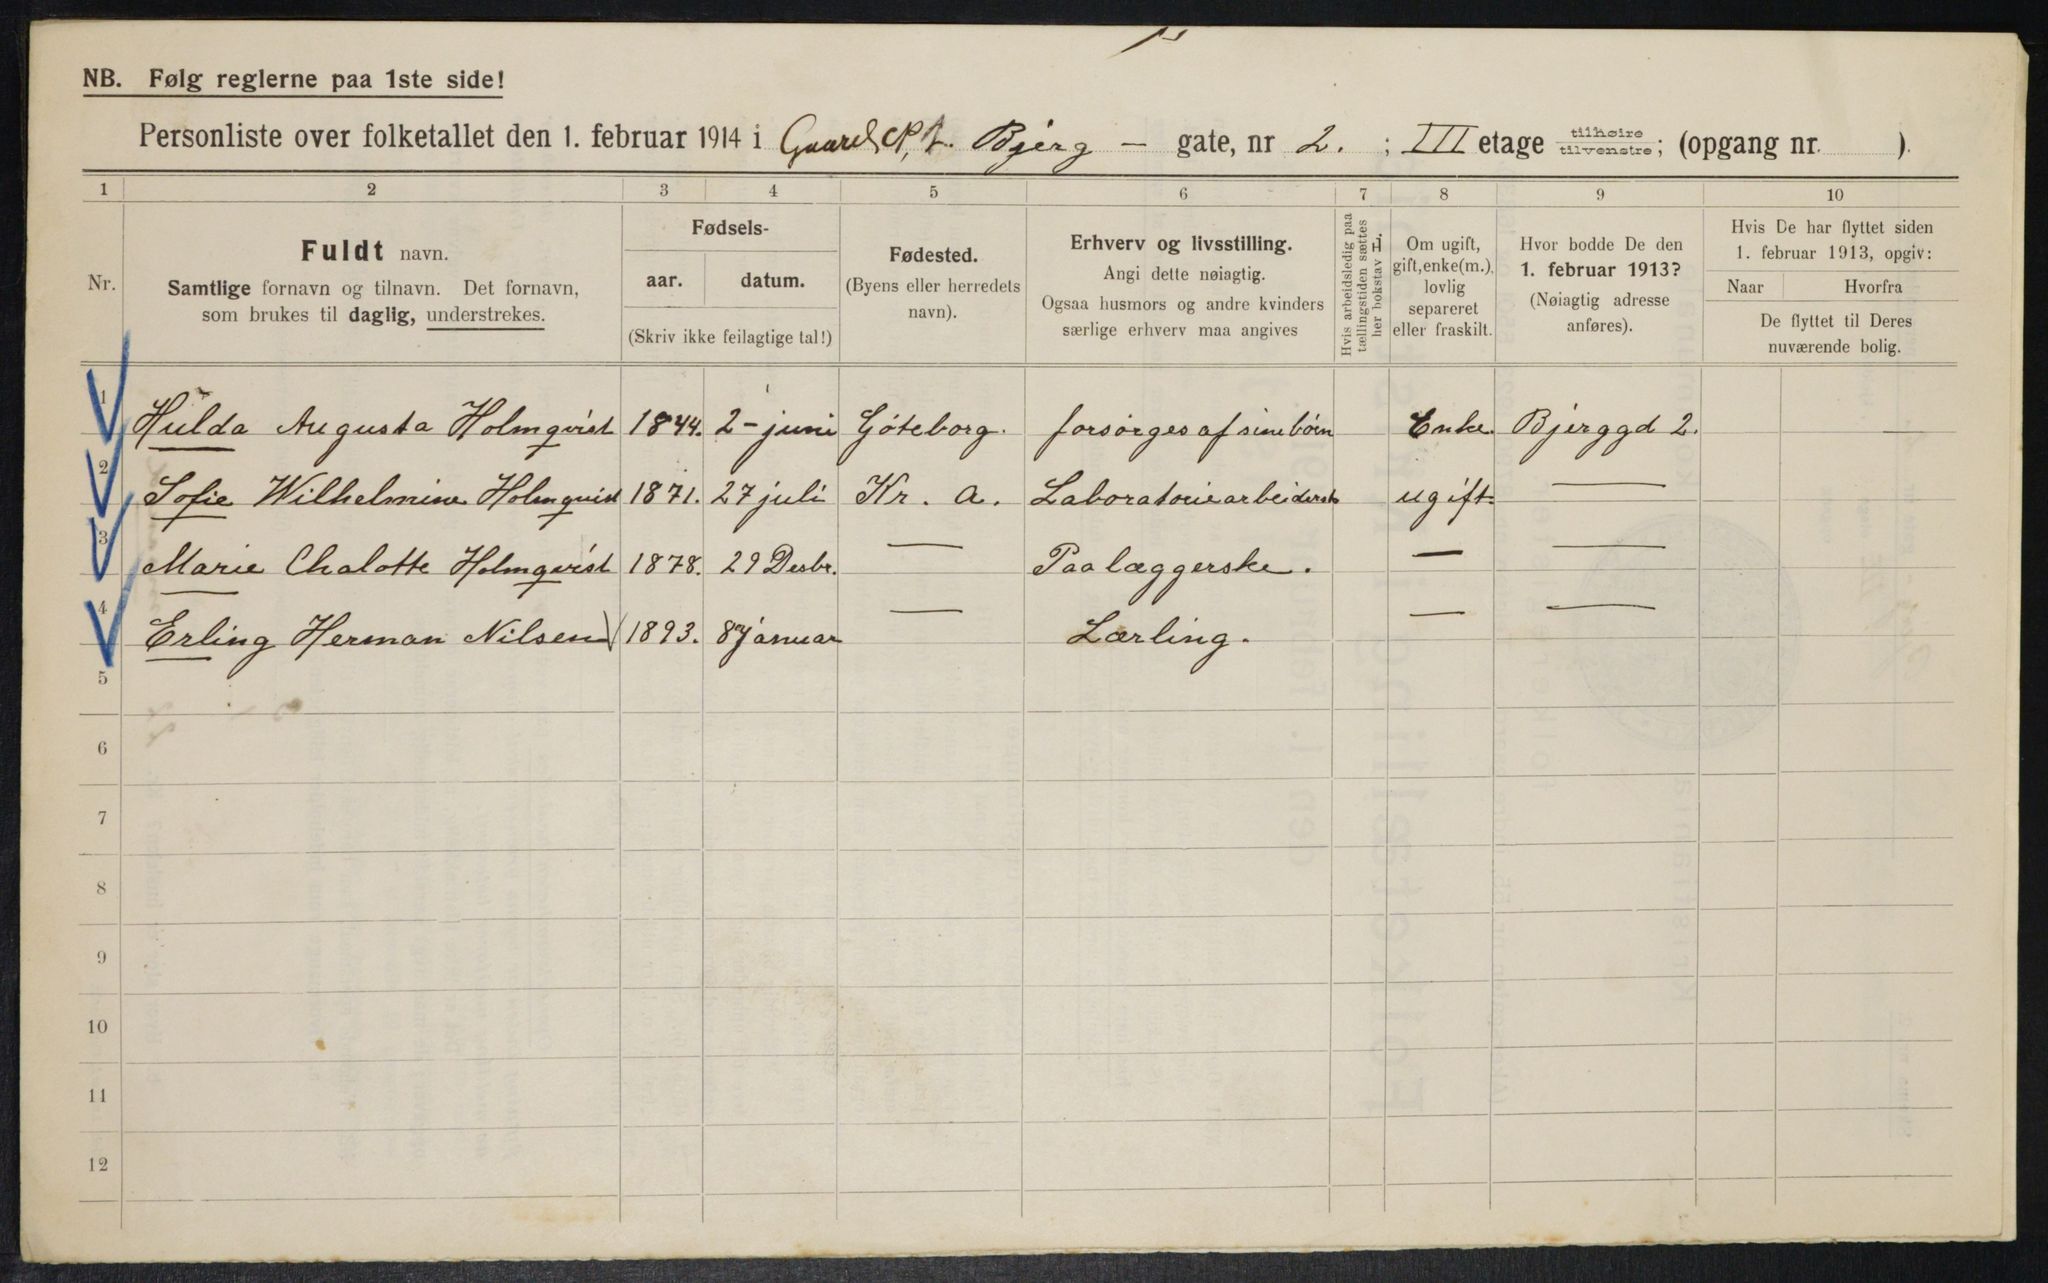 NB. Følg reglerne paa 1ste side!
Personliste over folketallet den 1. februar 1914 i Bjerg — gate, nr 2. ; III etage tilhøire tilvenstre; (opgang nr. ).
1 2 3 4 5 6 7 8 9 10
Nr.
Fuldt navn.
Samtlige fornavn og tilnavn. Det fornavn,
som brukes til daglig, understrekes.
Fødsels-
aar. datum.
(Skriv ikke feilagtige tal!)
Fødested.
(Byens eller herredets
navn).
Erhverv og livsstilling.
Angi dette nøiagtig.
Ogsaa husmors og andre kvinders
særlige erhverv maa angives
Hvis arbeidsledig paa
tællingstiden sættes
her bokstav L.
Om ugift,
gift, enke(m.),
lovlig
separeret
eller fraskilt.
Hvor bodde De den
1. februar 1913?
(Nøiagtig adresse
anføres).
Hvis De har flyttet siden
1. februar 1913, opgiv:
Naar Hvorfra
De flyttet til Deres
nuværende bolig.
1 Hulda Augusta Holmqvist 1844. 2 - juni Göteborg. forsørges af sine børn Enke. Bjerggd 2. —
2 Sofie Wilhelmine Holmqvist 1871. 27 juli Kr. a. Laboratoriearbeiderske ugift. —
3 Marie Chalotte Holmqvist 1878. 29 Desbr. — Paalæggerske. — —
4 Erling Herman Nilsen 1893. 8 januar — Lærling. — —
5
6
7
8
9
10
11
12